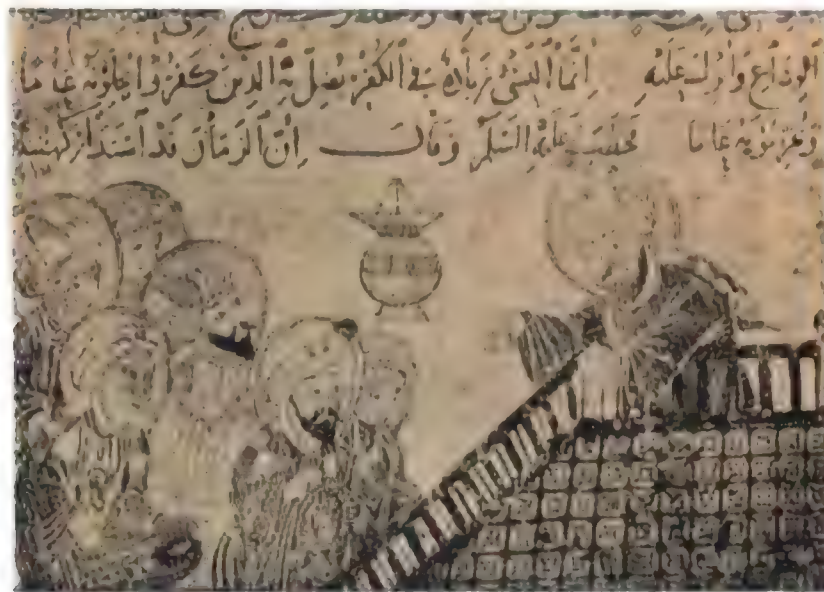 الوداع وانزل عليه إنما النسيء زيادة في الكفر يضل به الذين كفروا يحلونه عاما
ويحرمونه عاما فخطب عليه السلم وقال إن الزمان قد استدار كهيئته